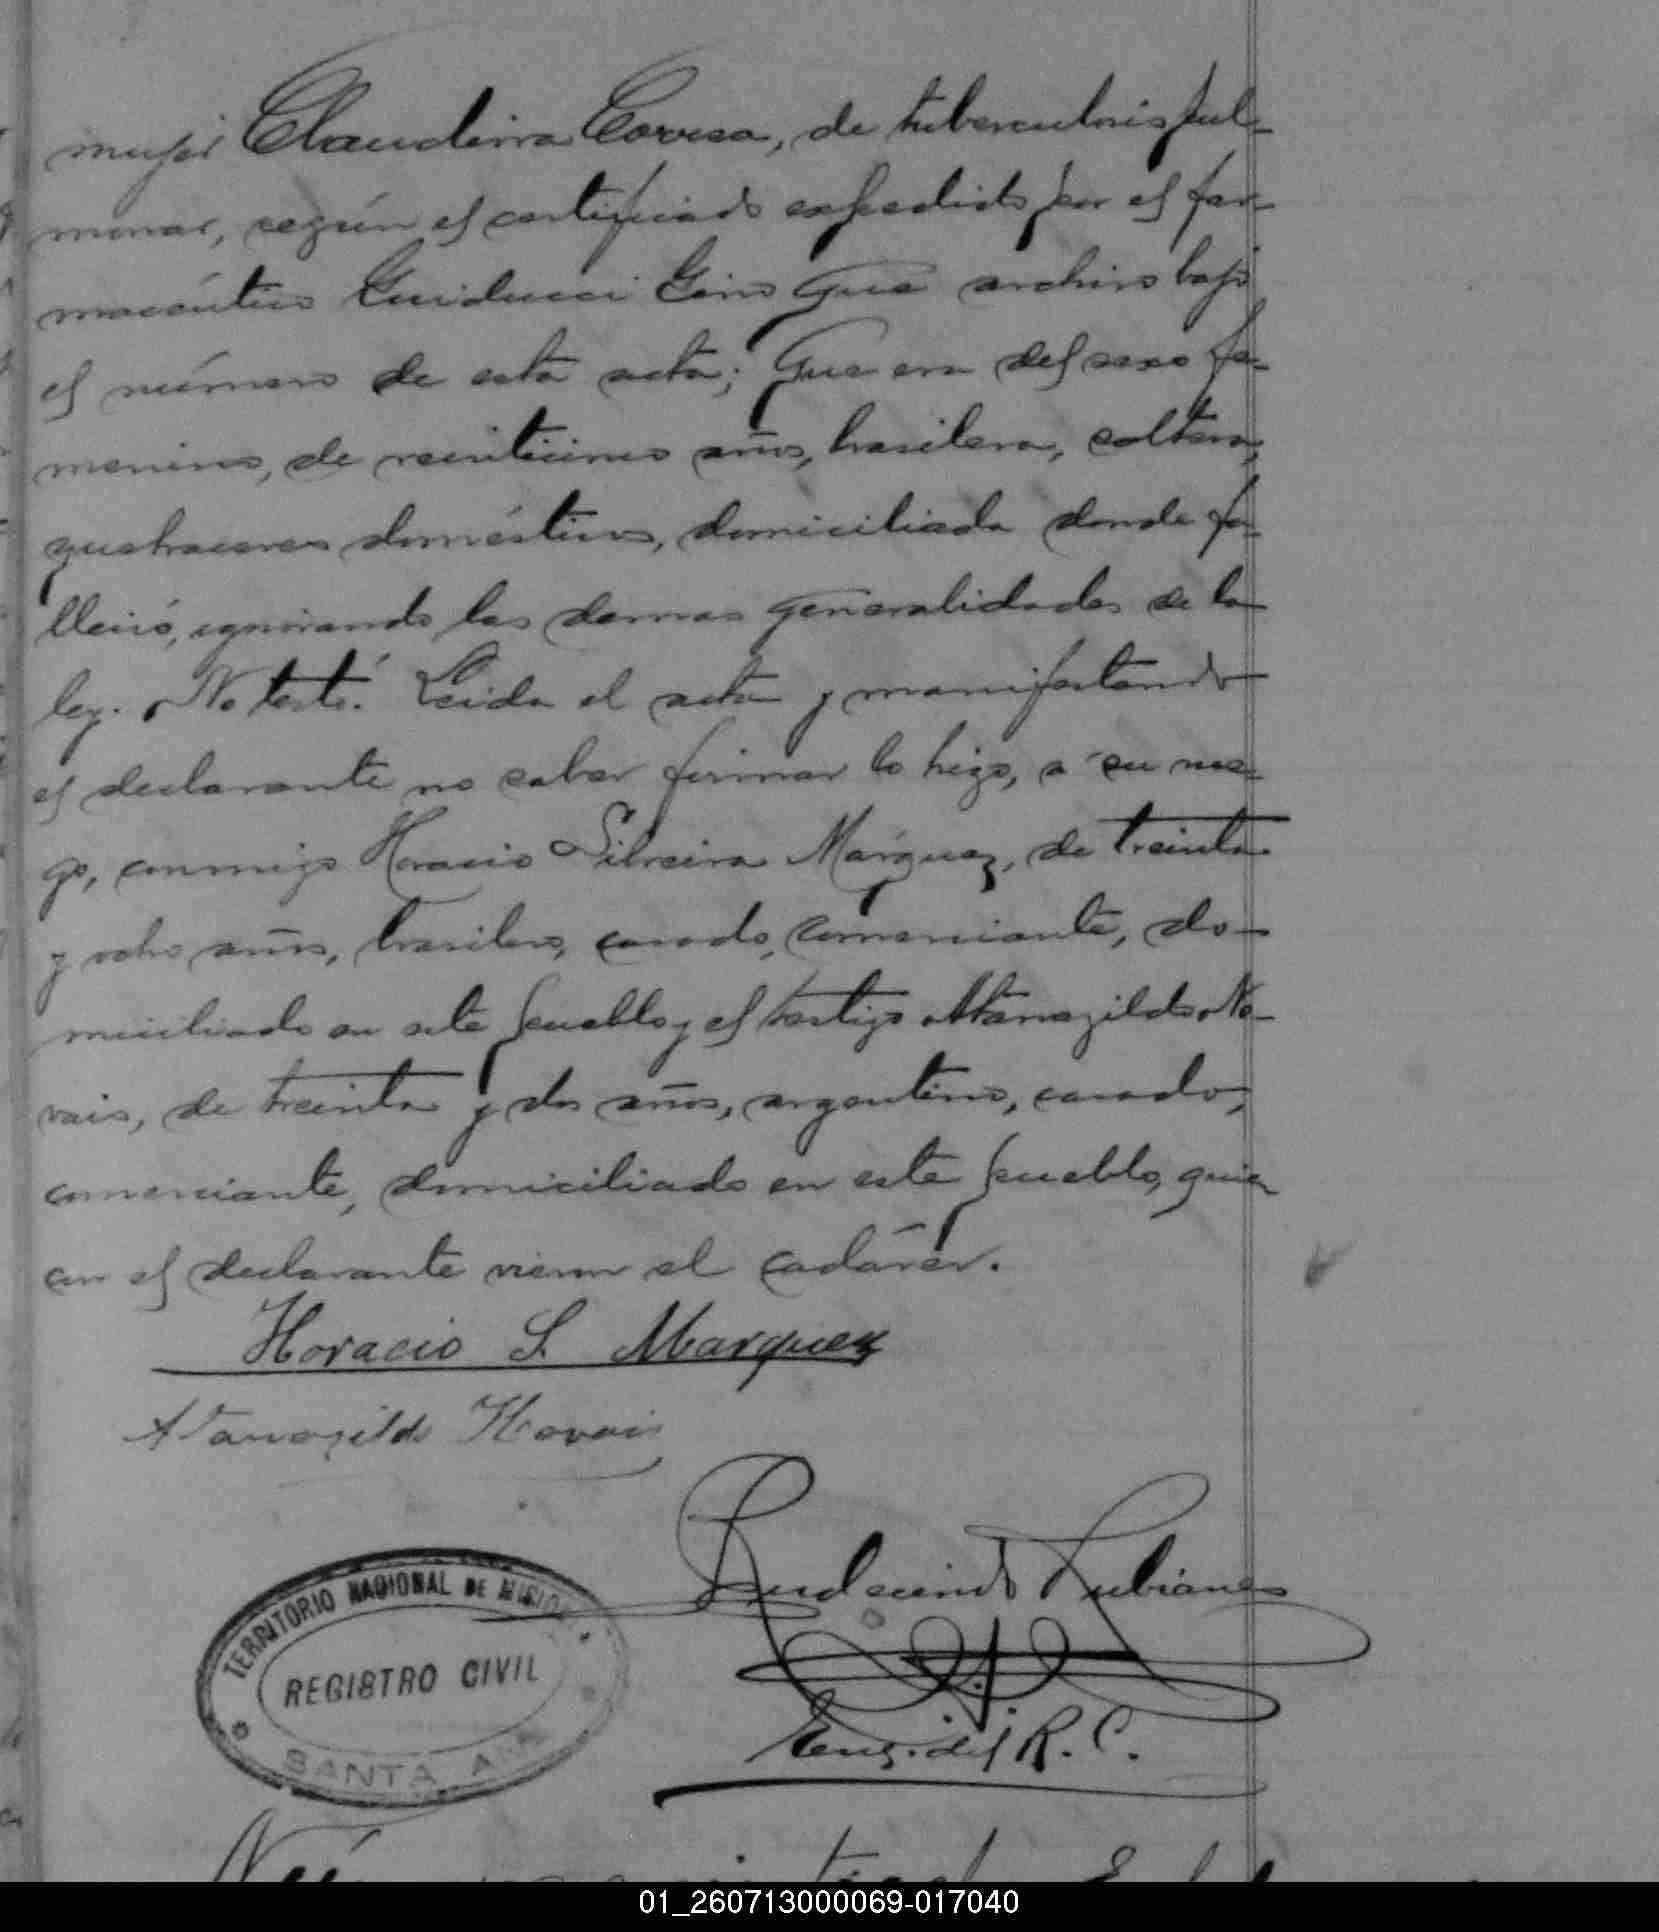 mujer Claudeina Correa, de tuberculosis pul-
monar, según el certificado expedido por el far-
macéutico Guiducci Gino que archivo bajo
el número de esta acta; Que era del sexo fe-
menino, de veinticinco años, brasilera, soltera,
quehaceres domésticos, domiciliada donde fa-
lleció, ignorando las demas generalidades de la
ley. No testó. Leida el acta y manifestando
el declarante no saber firmar lo hizo, a su rue-
go, conmigo Horacio Silveira Márquez, de treinta
y ocho años, brasilero, casado, comerciante, do-
miciliado en este pueblo y el testigo Atanagildo No-
vais, de treinta y dos años, argentino, casado,
comerciante, domiciliado en este pueblo, quien
con el declarante vieron el cadáver.
Horacio S. Marquez
Atanagildo Novais
Rudecindo Lubianes
Enc. del R. C.
TERRITORIO NACIONAL DE MISIONES
REGISTRO CIVIL
SANTA ANA
01_260713000069-017040